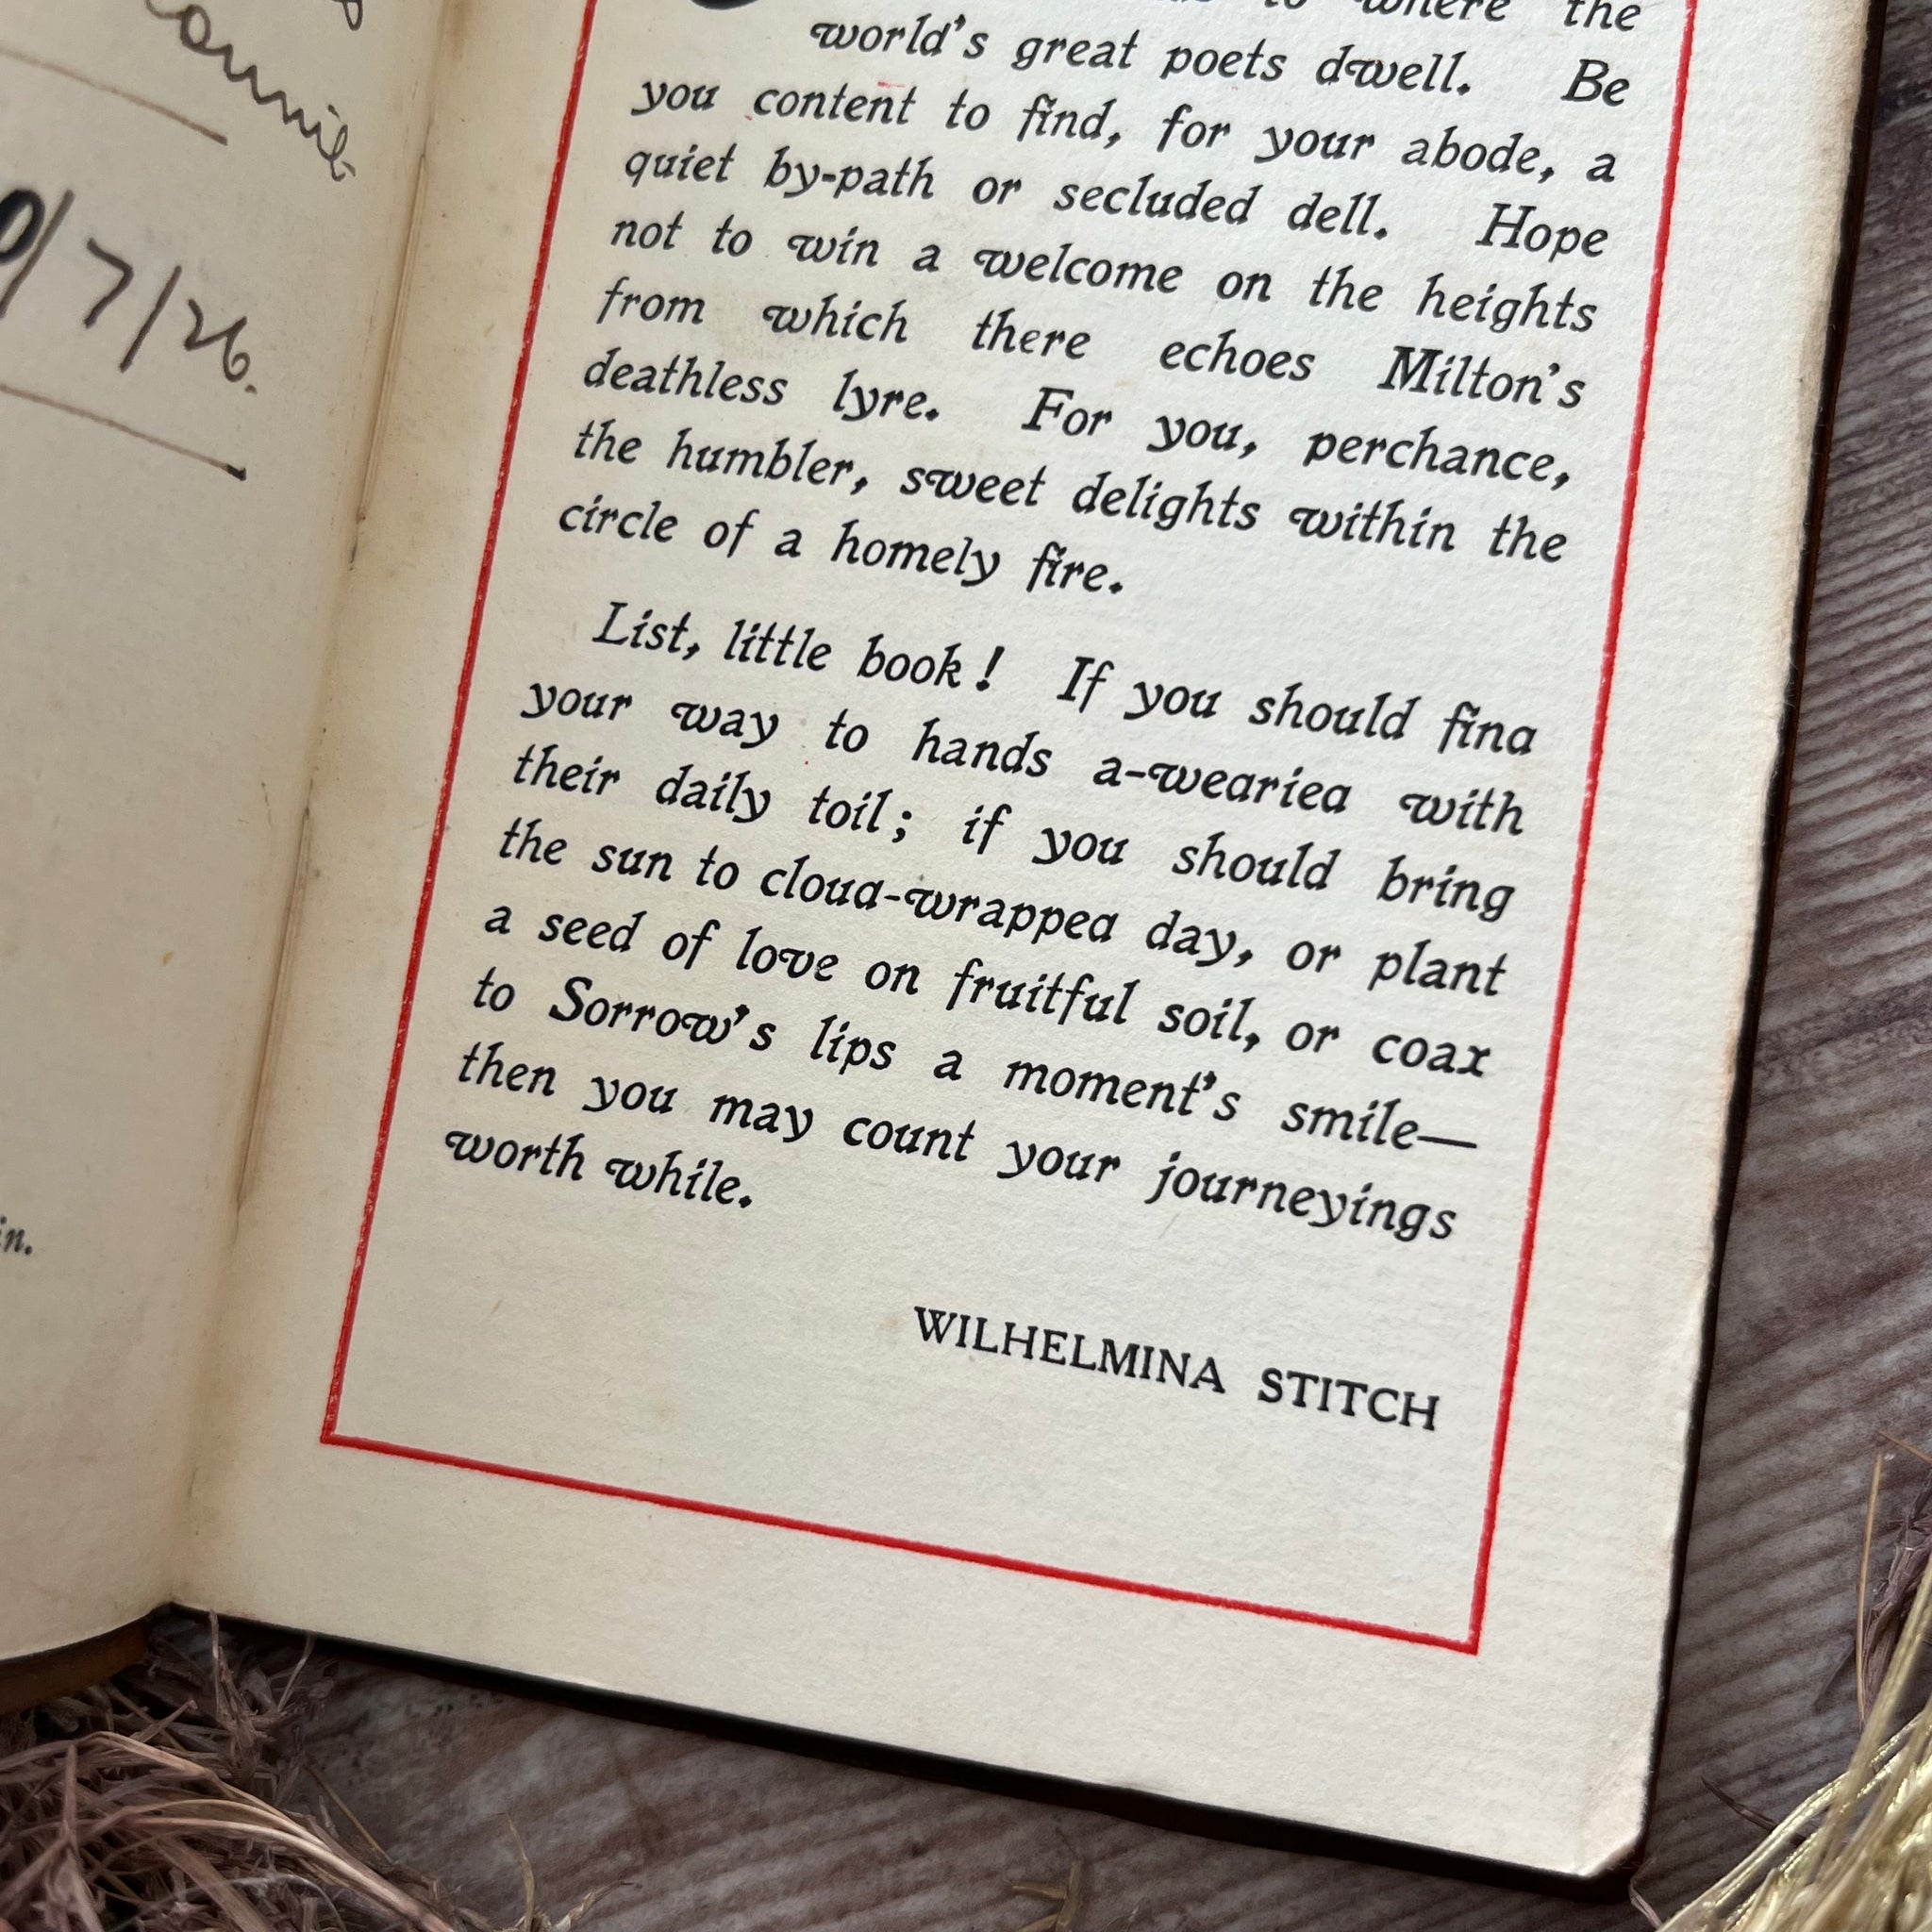 0/7/26.
in.
to where the
world's great poets dwell. Be
you content to find, for your abode, a
quiet by-path or secluded dell. Hope
not to win a welcome on the heights
from which there echoes Milton's
deathless lyre. For you, perchance,
the humbler, sweet delights within the
circle of a homely fire.
List, little book! If you should find
your way to hands a-wearied with
their daily toil; if you should bring
the sun to cloud-wrapped day, or plant
a seed of love on fruitful soil, or coax
to Sorrow's lips a moment's smile—
then you may count your journeyings
worth while.
WILHELMINA STITCH